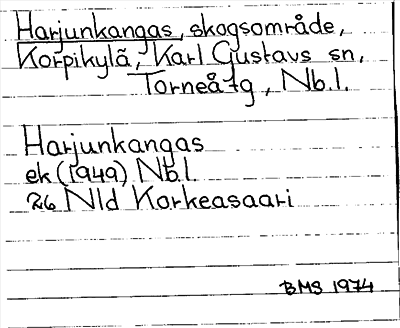 Harjunkangas, skogsområde,
Korpikylä, Karl Gustavs sn,
Torneå tg, Nb.l.
Harjunkangas
ek (1949) Nbl.
26 Nld Korkeasaari
BMS 1974